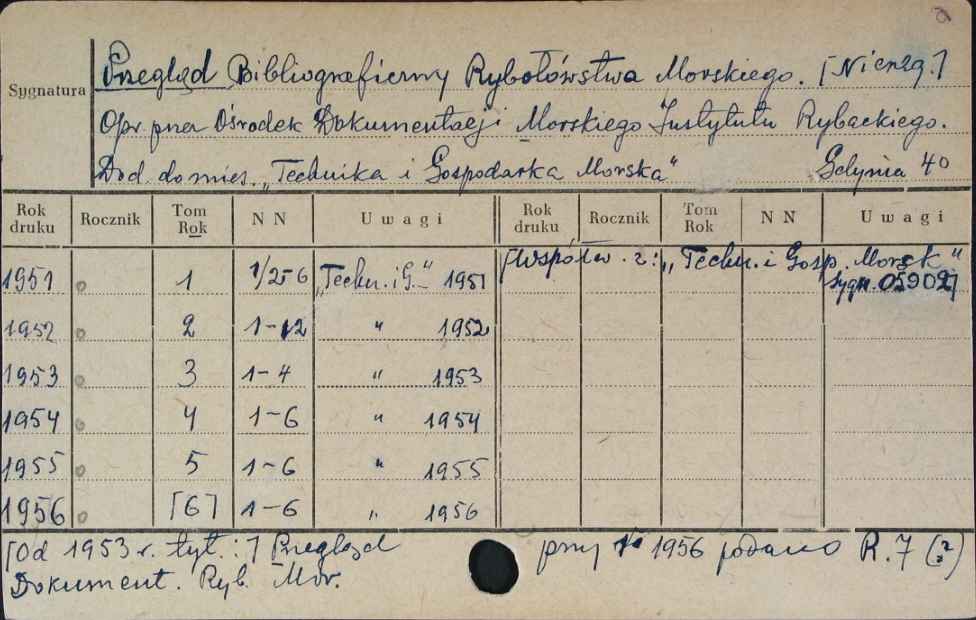 Sygnatura
Przegląd Bibliograficzny Rybołówstwa Morskiego. [Nierreg.]
Opr. przez Ośrodek Dokumentacji Morskiego Instytutu Rybackiego.
Dod. do mies. „Technika i Gospodarka Morska" Gdynia 40
Rok druku Rocznik Tom Rok N N Uwagi Rok druku Rocznik Tom Rok N N Uwagi
[Współw. z: „Techn. i Gosp. Morsk"
1951 1 1/2 5 6 „Techn. i G." 1951 sygn. 05902]
1952 2 1-12 " 1952
1953 3 1-4 " 1953
1954 4 1-6 " 1954
1955 5 1-6 " 1955
1956 [6] 1-6 " 1956
[Od 1953 r. tyt.:] Przegląd przy 1956 podano R. 7 (?)
Dokument. Ryb. Mor.